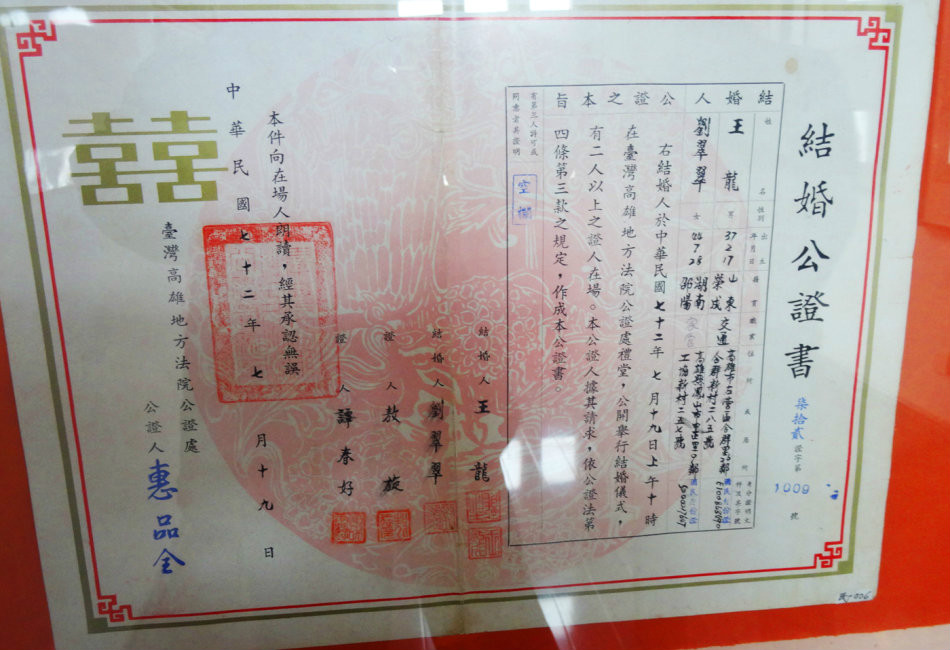 結婚公證書
柒拾貳 證字第 1009 號
結婚人
姓名
性別
出生年月日
籍貫
職業
住所或居所
王龍 男 37 2 17 山東榮成 交通
劉翠翠 女 湖南邵陽 家管
公證之本旨
右結婚人於中華民國七十二年七月十九日上午十時
在臺灣高雄地方法院公證處禮堂,公開舉行結婚儀式,
有二人以上之證人在場。本公證人據其請求,依公證法第
四條第三款之規定,作成本公證書。
有第三人許可或
同意者其證明
空欄
結婚人 王龍
結婚人 劉翠翠
證人 敖旋
證人 譚春好
本件向在場人朗讀,經其承認無誤
中華民國七十二年七月十九日
臺灣高雄地方法院公證處
公證人 惠品全
囍
民-006